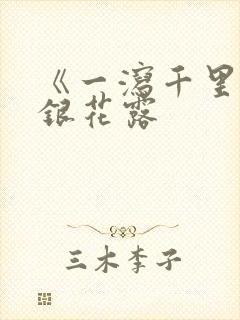 《一泻千里
银花露
三木李子